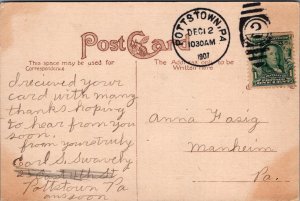 Post Card
POTTSTOWN, PA.
DEC 12
1030 AM
1907
This space may be used for
Correspondence
The Address only to be
Written here
I received your
card with many
thanks hoping
to hear from you
soon.
from yours truly
Earl S. Swavely
Pottstown Pa
ans soon
Anna Fasig
Manheim
Pa.